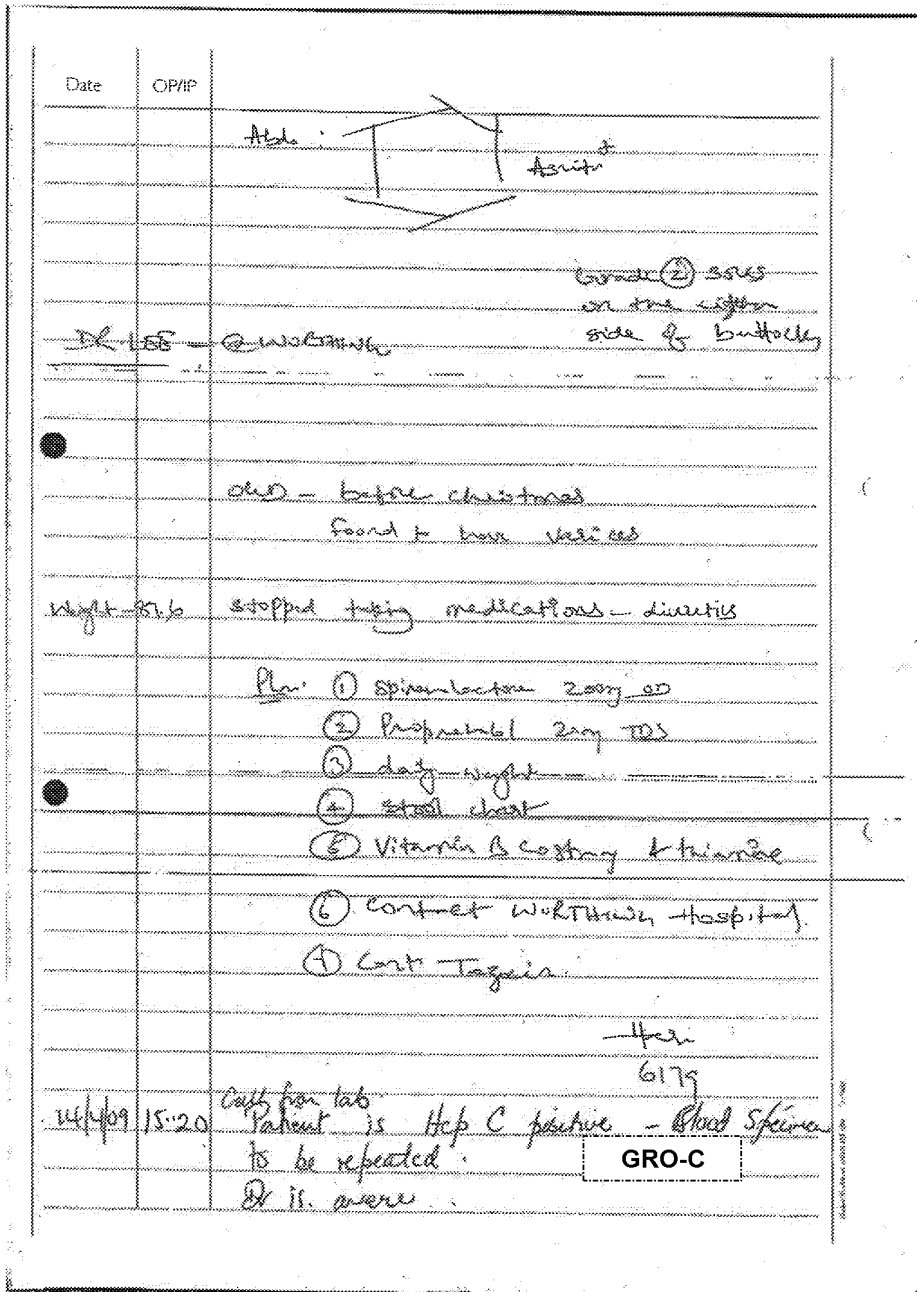 Date OP/IP
Abdo :
Ascites +
Grade ② sores
on the
side of buttocks
DR LEE - @ WORTHING
OGD - before christmas
found to have varices
Weight - 87.6 stopped taking medications - diuretics
Plan: ① Spironolactone 200mg OD
② Propranolol 20mg TDS
③ daily weight
④ stool chart
⑤ Vitamin B Co strong & thiamine
⑥ Contact WORTHING Hospital.
⑦ Cont Tazocin.
6179
14/4/09 15:20 Call from lab.
Patient is Hep C positive - Blood Specimen
to be repeated.
GRO-C
Dr is aware.